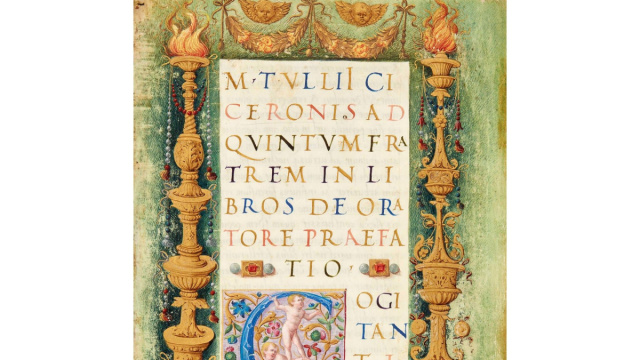 M·TVLLII CI
CERONIS AD
QVINTVM FRA
TREM IN LI
BROS DE ORA
TORE PRAEFA
TIO·
COGI
TAN